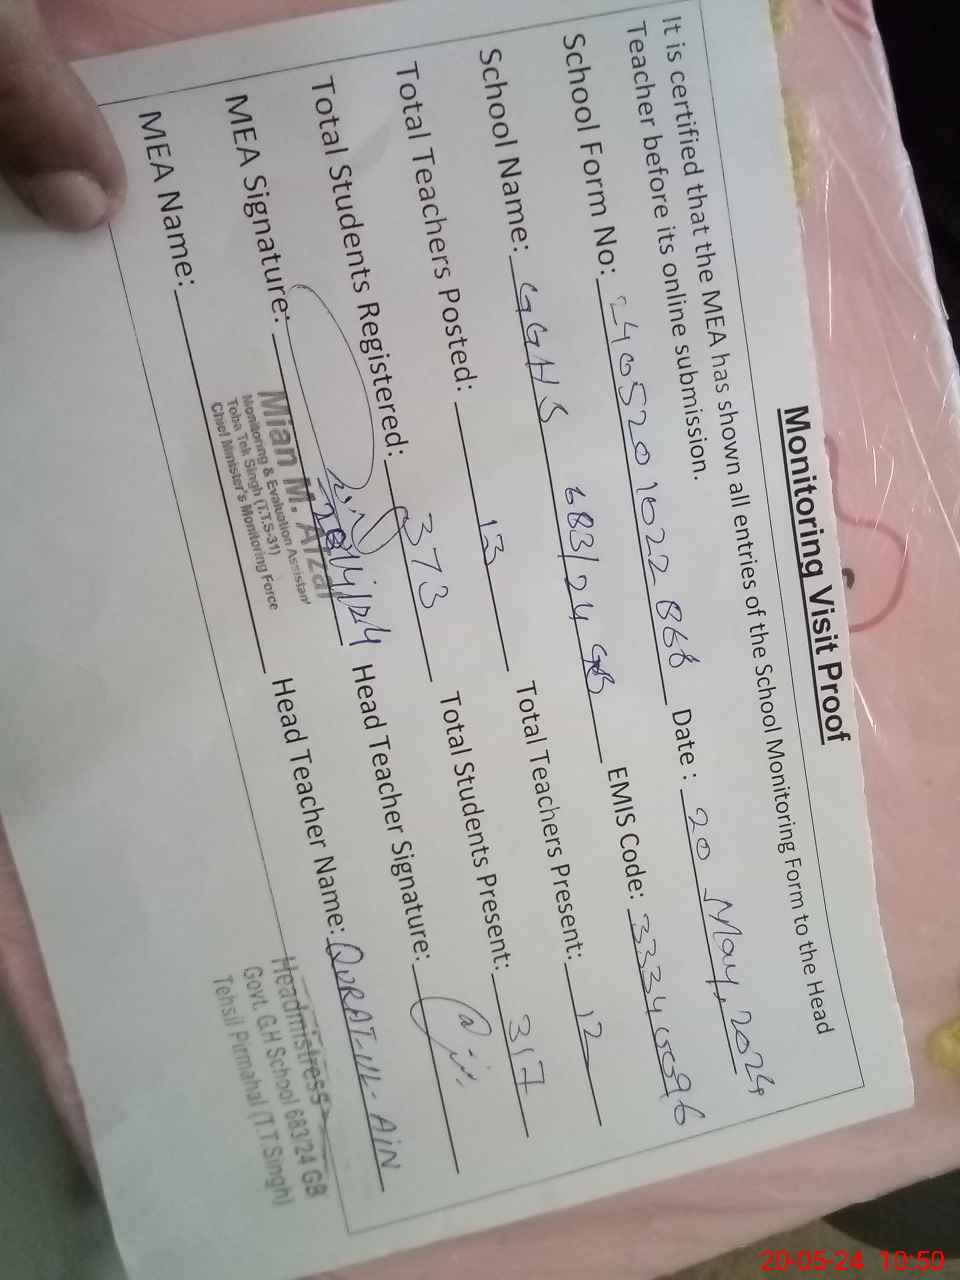 Monitoring Visit Proof
It is certified that the MEA has shown all entries of the School Monitoring Form to the Head
Teacher before its online submission.
School Form No: Date : 20 May, 2024
School Name: GGHS 683/24 GB EMIS Code:
Total Teachers Posted: 13 Total Teachers Present: 12
Total Students Registered: 373 Total Students Present: 317
MEA Signature: Head Teacher Signature:
Mian M. Afzal
Monitoring & Evaluation Assistant
Toba Tek Singh (T.T.S-31)
Chief Minister's Monitoring Force
MEA Name: Head Teacher Name: QURAT-UL-AIN
Headmistress
Govt. G.H School 683/24 GB
Tehsil Pirmahal (T.T.Singh)
20-05-24 10:50